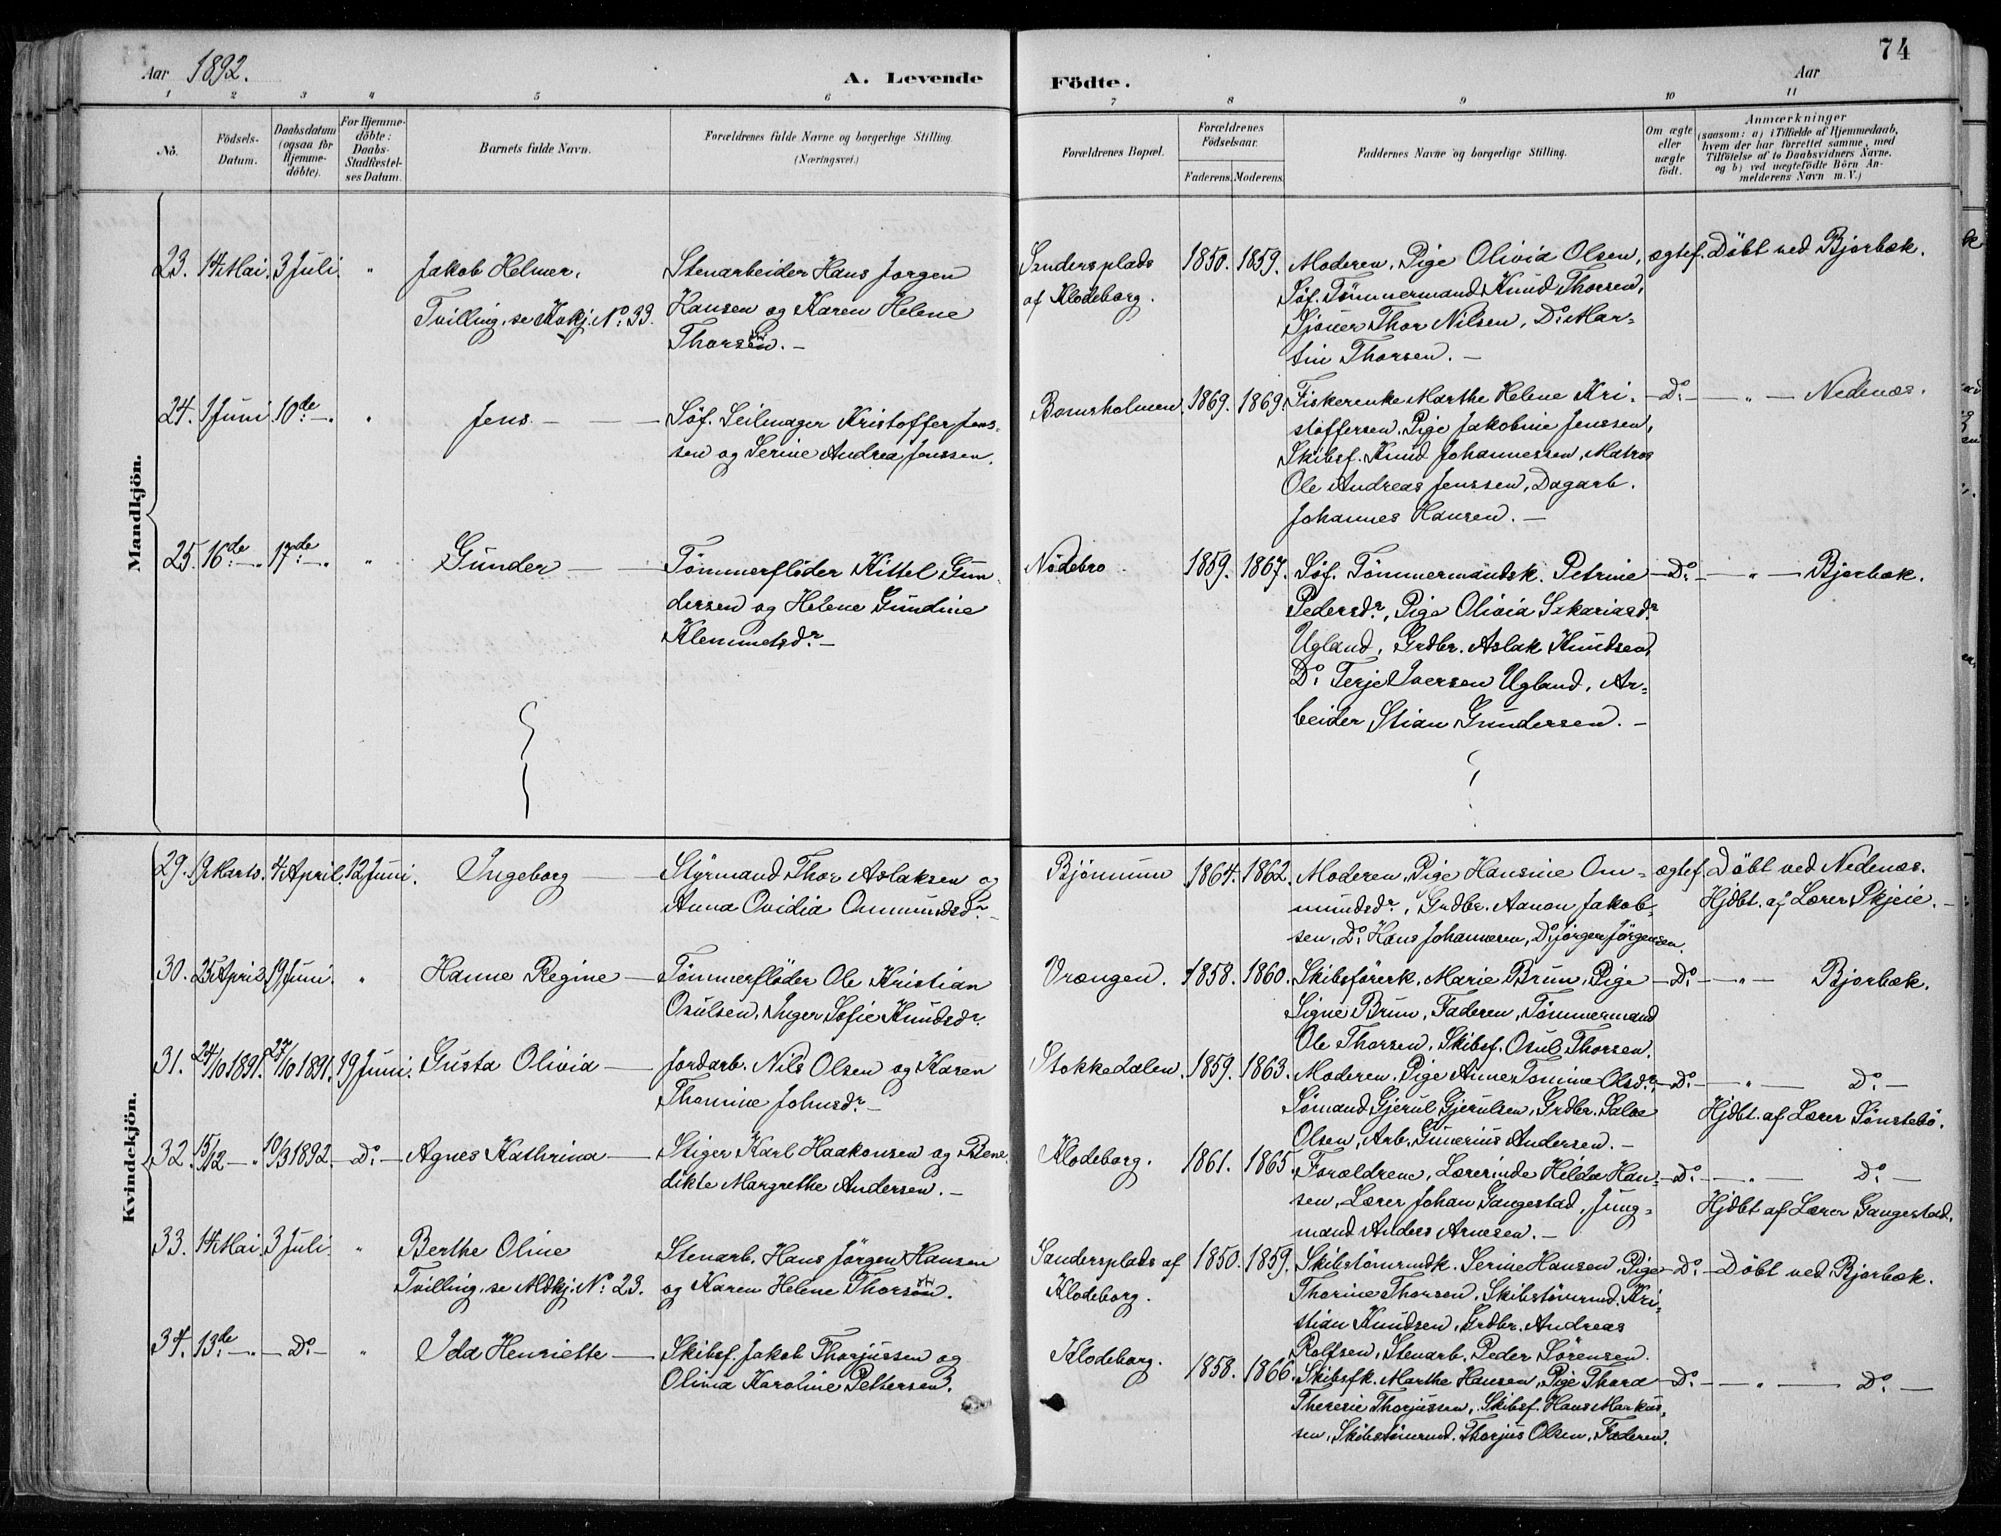 74
Aar 1892.
A. Levende Födte.
Aar
1 2 3 4 5 6 7 8 9 10 11
No.
Födsels-
Datum.
Daabsdatum
(ogsaa for
Hjemme-
döbte).
For Hjemme-
döbte:
Daabs-
Stadfæstel-
ses Datum.
Barnets fulde Navn.
Forældrenes fulde Navne og borgerlige Stilling.
(Næringsvei.)
Forældrenes Bopæl.
Forældrenes
Födselsaar.
Faderens. Moderens.
Faddernes Navne og borgerlige Stilling.
Om ægte
eller
uægte
födt.
Anmærkninger
(saasom: a) i Tilfælde af Hjemmedaab,
hvem der har forrettet samme, med
Tilföielse af to Daabsvidners Navne.
og b) ved uægtefödte Börn An-
melderens Navn m. V.)
Mandkjön.
23. 14 Mai. 3 Juli. " Jakob Helmer,
Tvilling, se Kvkj. No: 33.
Stenarbeider Hans Jørgen
Hansen og Karen Helene
Thorsen. –
Sandersplads
af Klodeborg.
1850. 1859.
Moderen, Pige Olivia Olsen,
Søf. Tømmermand Knud Thorsen,
Sjouer Thor Nilsen, Do: Mar-
tin Thorsen. –
ægtef. Døbt ved Bjorbæk.
24. 1 Juni 10de – " " Jens. – –
Søf. Seilmager Kristoffer Jens-
sen og Serine Andrea Jenssen.
Bomsholmen. 1869. 1869.
Fiskerenke Marthe Helene Kri-
stoffersen, Pige Jakobine Jenssen,
Skibsf. Knud Johannessen, Matros
Ole Andreas Jenssen, Dagarb.
Johannes Hansen. –
– Do: – – " – Nedenæs.
25. 16de – " 17de – " " Gunder – –
Tømmerfløder Kittel Gun-
dersen og Helene Gundine
Klemmetsdr. –
Nødebro 1859. 1867.
Søf. Tømmermandsk. Petrine
Pedersdr, Pige Olivia Zakariasdr
Ugland, Grdbr. Aslak Knudsen,
Do: Terje Iversen Ugland, Ar-
beider Stian Gundersen. –
– Do: – – " – Bjorbæk.
Kvindekjön.
29. 19 Marts. 4 April. 12 Juni. Ingeborg –
Styrmand Thor Aslaksen og
Anna Ovidia Ommundsdr. –
Bjønnum 1864. 1862.
Moderen, Pige Hansine Om-
mundsdr, Grdbr. Aanon Jakob-
sen, Do: Hans Johannesen, Do: Jørgen Jørgensen.
ægtef. Døbt ved Nedenæs.
Hjdbt. af Lærer Skjeie. –
30. 25 April. 19 Juni. " Hanne Regine –
Tømmerfløder Ole Kristian
Osulsen, Inger Sofie Knudsdr.
Vrængen. 1858. 1860.
Skibsførerk. Marie Brun, Pige
Signe Brun, Faderen, Tømmermand
Ole Thorsen, Skibsf. Osul Thorsen.
– Do: – – " – Bjorbæk.
31. 24/10 1891. 27/10 1891. 19 Juni. Gusta Olivia –
Jordarb. Nils Olsen og Karen
Thomine Johnsdr. –
Stokkedalen. 1859. 1863.
Moderen, Pige Anne Tomine Olsdr,
Sømand Gjerul Gjerulsen, Grdbr. Salve
Olsen, Arb. Gunerius Andersen. –
– Do: – – " – Do: –
Hjdbt. af Lærer Sønstebø.
32. 15/12 – " 10/3 1892. – Do: – Agnes Kathrina –
Stiger Karl Haakonsen og Bene-
dikte Margrethe Andersen. –
Klodeborg. 1861. 1865.
Forældrene, Lærerinde Hilda Han-
sen, Lærer Johan Gangestad, Jung-
mand Anders Arnesen. –
– Do: – – " – Do: –
Hjdbt. af Lærer Gangestad.
33. 14 Mai. 3 Juli. " Berthe Oline
Tvilling, se Mdkj. No: 23.
Stenarb. Hans Jørgen Hansen
og Karen Helene Thorsen.
Sandersplads af
Klodeborg.
1850. 1859.
Skibstømrmdsk. Serine Hansen, Pige
Thorine Thorsen, Skibstømrmd. Kri-
stian Knudsen, Grdbr. Andreas
Rolfsen, Stenarb. Peder Sørensen.
– Do: – Døbt ved Bjorbæk.
34. 13de – " – Do: – " Ida Henriette –
Skibsf. Jakob Thorjussen og
Olivia Karoline Pettersen.
Klodeborg. 1858. 1866.
Skibsfk. Marthe Hansen, Pige Thora
Theresie Thorjussen, Skibsf. Hans Markus-
sen, Skibstømrmd. Thorjus Olsen, Faderen.
– Do: – – " – Do: –